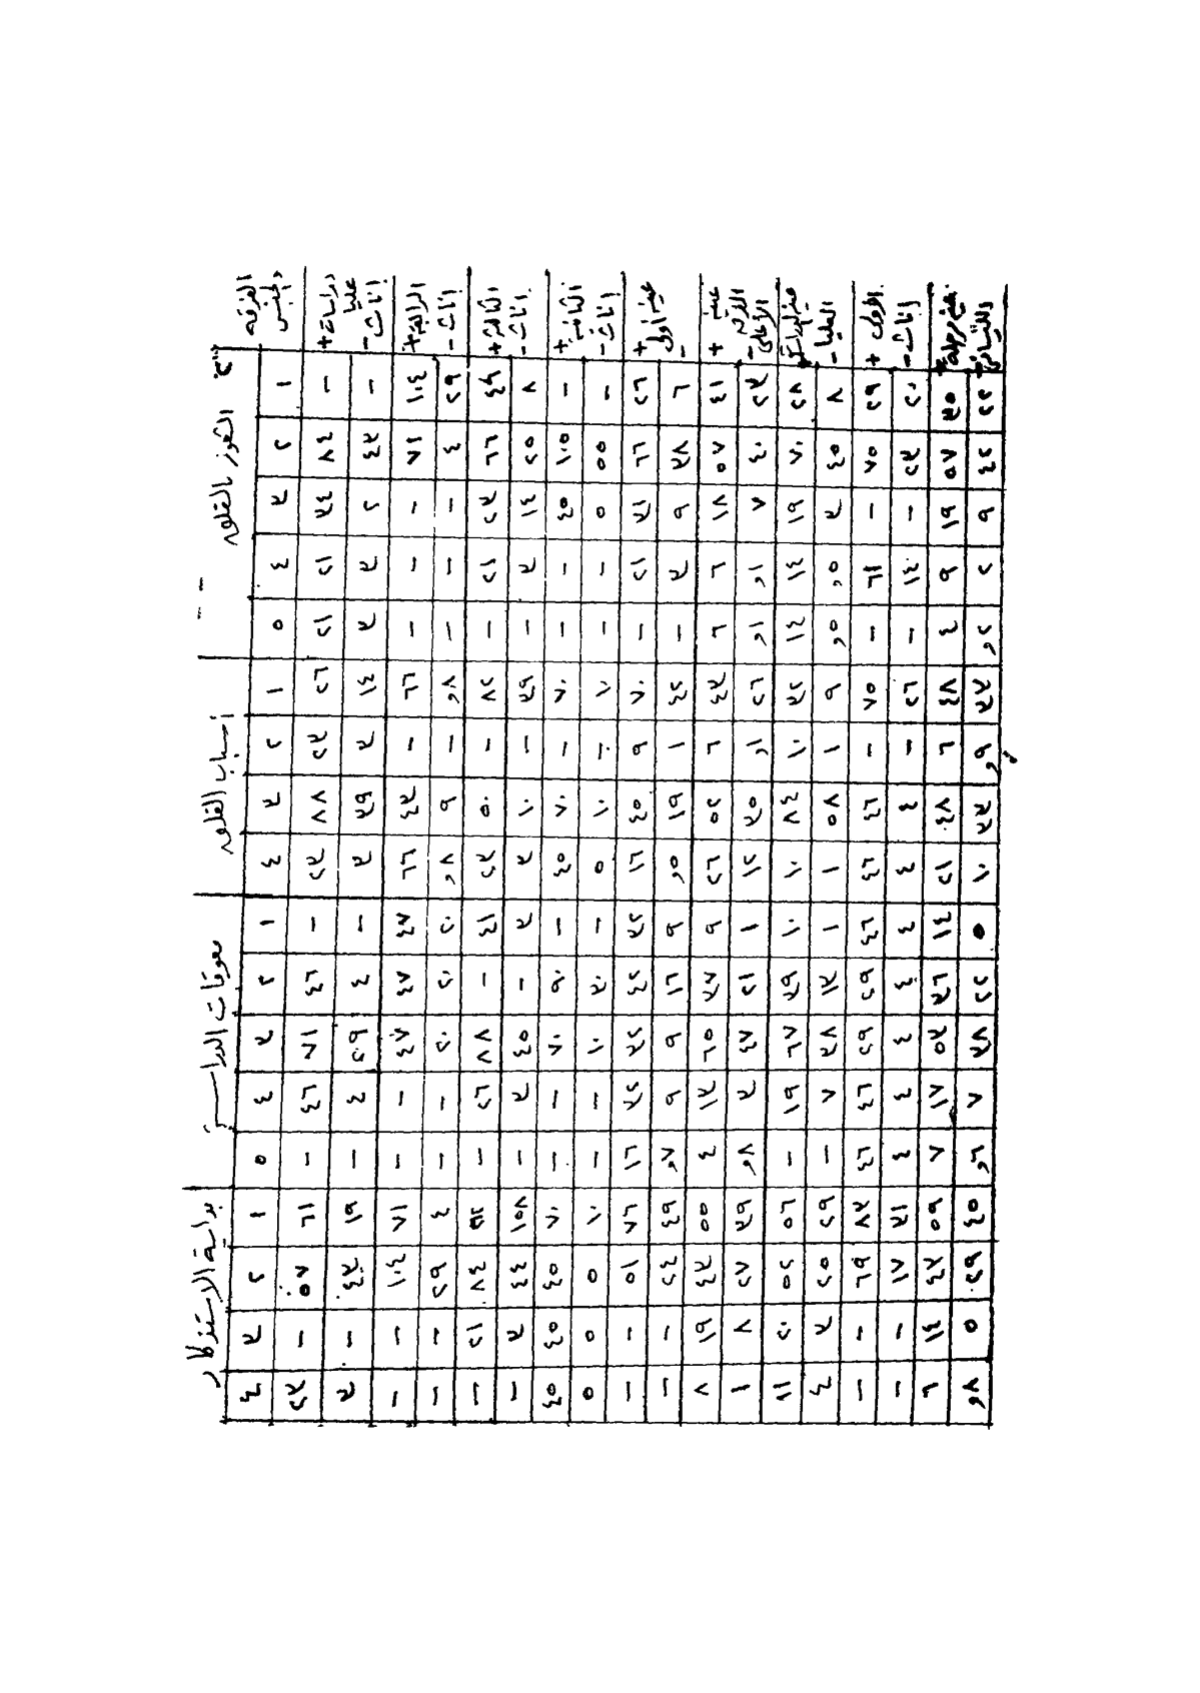 الفرقه الشعور بالقلق أسباب القلق معوقات الدراسة بداية الاستذكار
والجنس ١ ٢ ٣ ٤ ٥ ١ ٢ ٣ ٤ ١ ٢ ٣ ٤ ٥ ١ ٢ ٣ ٤
دراسات + – ٨٤ ٣٤ ٢١ ٢١ ٢٦ ٢٣ ٨٨ ٢٣ – ٤٦ ٧١ ٤٦ – ٦١ ٥٧ – ٢٣
عليا
إناث - – ٤٣ ٢ ٣ ٣ ١٤ ٣ ٣٩ ٣ – ٤ ٢٠٩ ٤ – ١٩ ٤٣ – ٣
الرابعة + ١٠٤ ٧١ – – – ٦٦ – ٤٣ ٦٦ ٤٧ ٤٧ ٤٧ – – ٧١ ١٠٤ – –
إناث - ٢٩ ٤ – – – ٨و – ٩ ٨و ٢٠ ٢٠ ٢٠ – – ٤ ٢٩ – –
الثالثة + ٤٩ ٦٦ ٢٣ ٢١ – ٨٢ – ٥٠ ٢٣ ٤١ – ٨٨ ٢٦ – ٩٢ ٨٤ ٢١ –
إناث - ٨ ٢٥ ١٤ ٣ – ٣٩ – ١٠ ٣ ٣ – ٤٥ ٣ – ١٥٨ ٤٤ ٣ –
الثانية + – ١٠٥ ٤٥ – – ٧٠ – ٧٠ ٤٥ – ٩٠ ٧٠ – – ٧٠ ٤٥ ٤٥ ٤٥
إناث - – ٥٥ ٥ – – ١٠ – ١٠ ٥ – ٣٠ ١٠ – – ١٠ ٥ ٥ ٥
عينة أولى + ٢٦ ٦٦ ٣١ ٢١ – ٧٠ ٩ ٤٥ ١٦ ٣٢ ٤٢ ٣٢ ٣٢ ١٦ ٧٦ ٥١ – –
- ٦ ٣٨ ٩ ٣ – ٤٢ ١ ١٩ ٥و ٩ ١٦ ٩ ٩ ٧و ٤٩ ٢٤ – –
عينة + ٤١ ٥٧ ١٨ ٦ ٦ ٤٣ ٦ ٥٢ ٢٦ ٩ ٣٧ ٦٥ ١٣ ٤ ٥٥ ٤٣ ١٩ ٨
الأعلى - ٢٣ ٤٠ ٧ ١و ١و ٢٦ ١و ٣٥ ١٢ ١ ٢١ ٤٧ ٣ ٨و ٣٩ ٢٧ ٨ ١
+ ٢٨ ٧٠ ١٩ ١٤ ١٤ ٣٢ ١٠ ٨٤ ١٠ ١٠ ٣٩ ٦٧ ١٩ – ٥٦ ٥٢ ٢٠ ١١
العليا - ٨ ٤٥ ٣ ٥و ٥و ٩ ١ ٥٨ ١ ١ ١٣ ٣٨ ٧ – ٢٩ ٢٥ ٣ ٤
الأولى + ٢٩ ٧٥ – ٦١ – ٧٥ – ٤٦ ٤٦ ٤٦ ٢٩ ٢٩ ٤٦ ٤٦ ٨٣ ٦٩ – –
إناث - ٢٠ ٢٣ – ١٤ – ٢٦ – ٤ ٤ ٤ ٤ ٤ ٤ ٤ ٣١ ١٧ – –
مرحلة + ٣٥ ٥٧ ١٩ ٩ ٤ ٤٨ ٦ ٤٨ ٢١ ١٤ ٣٦ ٥٣ ١٧ ٧ ٥٩ ٤٧ ١٤ ٦
الليسانس - ٢٢ ٤٢ ٩ ٢ ٢و ٣٧ ٩و ٣٣ ١٠ ٥ ٢٢ ٣٨ ٧ ٦و ٤٥ ٢٩ ٥ ٨و